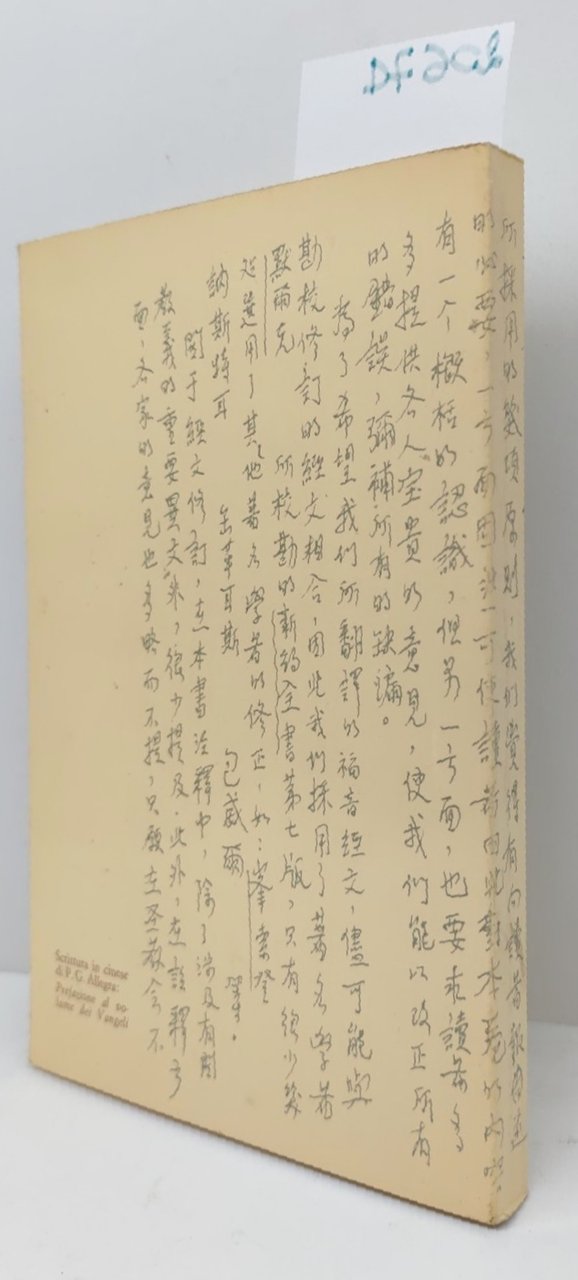 所採用的幾項原則，我們覺得有向讀者報告述
的必要，一方面因此可使讀者因此對本書的內容
有一个概括的認識，但另一方面，也要求讀者多
多提供各人宝貴的意見，使我們能以改正所有
的錯誤，彌補所有的缺漏。
為了希望我們所翻譯的福音經文，儘可能與
勘校修訂的經文相合，因此我們採用了著名學者
默爾克 所校勘的新約全書第七版，只有很少幾
處選用了其他著名學者的修正，如：
訥斯特耳 包威爾 等。
關于經文修訂，在本書注釋中，除了涉及有關
教義的重要異文外，很少提及．此外，在註釋方
面，各家的意見也多略而不提，只願在圣教会不
Scrittura in cinese
di P. G. Allegra:
Prefazione al vo-
lume dei Vangeli